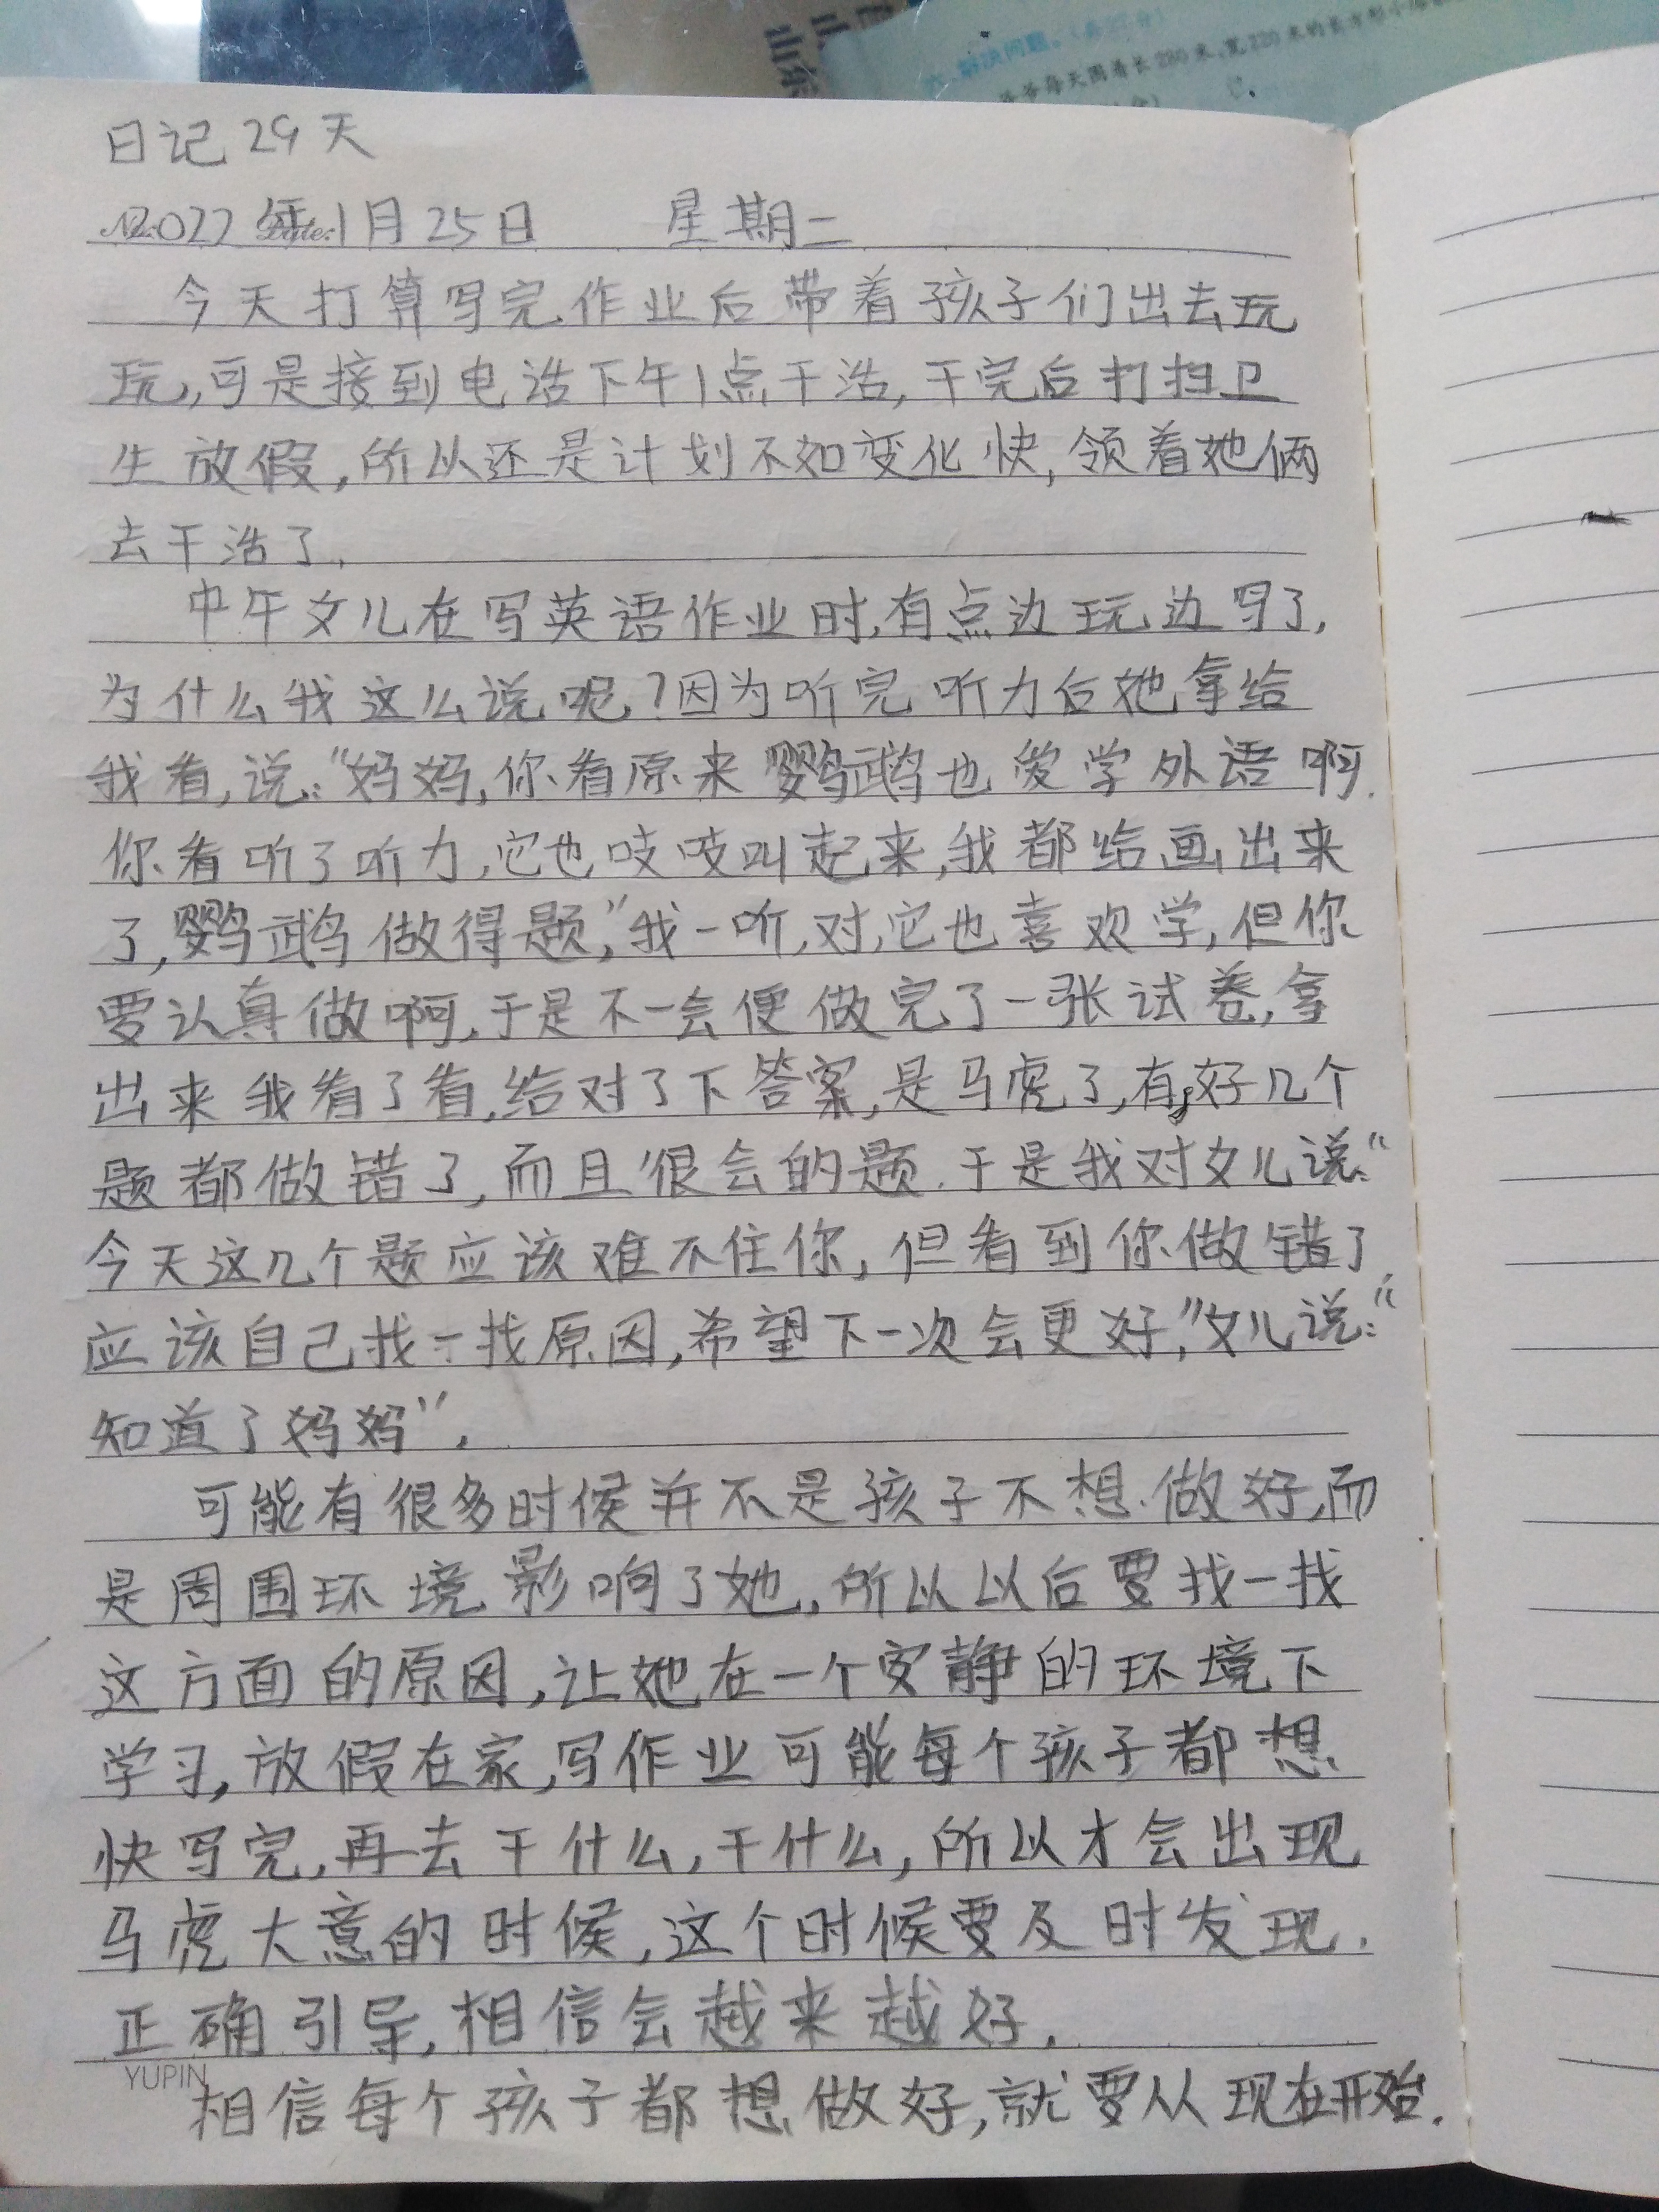 山东
六、解决问题。
日记29天
2022年1月25日 星期二
今天打算写完作业后带着孩子们出去玩
玩,可是接到电话下午1点干活,干完后打扫卫
生放假,所以还是计划不如变化快,领着她俩
去干活了.
中午女儿在写英语作业时,有点边玩边写了,
为什么我这么说呢?因为听完听力后她拿给
我看,说:“妈妈,你看原来鹦鹉也爱学外语啊.
你看听了听力,它也吱吱叫起来,我都给画出来
了,鹦鹉做得题,”我一听,对,它也喜欢学,但你
要认真做啊,于是不一会便做完了一张试卷,拿
出来我看了看,给对了下答案,是马虎了,有好几个
题都做错了,而且很会的题.于是我对女儿说:“
今天这几个题应该难不住你,但看到你做错了
应该自己找一找原因,希望下一次会更好,”女儿说:“
知道了妈妈”.
可能有很多时候并不是孩子不想做好,而
是周围环境影响了她,所以以后要找一找
这方面的原因,让她在一个安静的环境下
学习,放假在家,写作业可能每个孩子都想
快写完,再去干什么,干什么,所以才会出现
马虎大意的时候,这个时候要及时发现.
正确引导,相信会越来越好.
YUPIN
相信每个孩子都想做好,就要从现在开始.